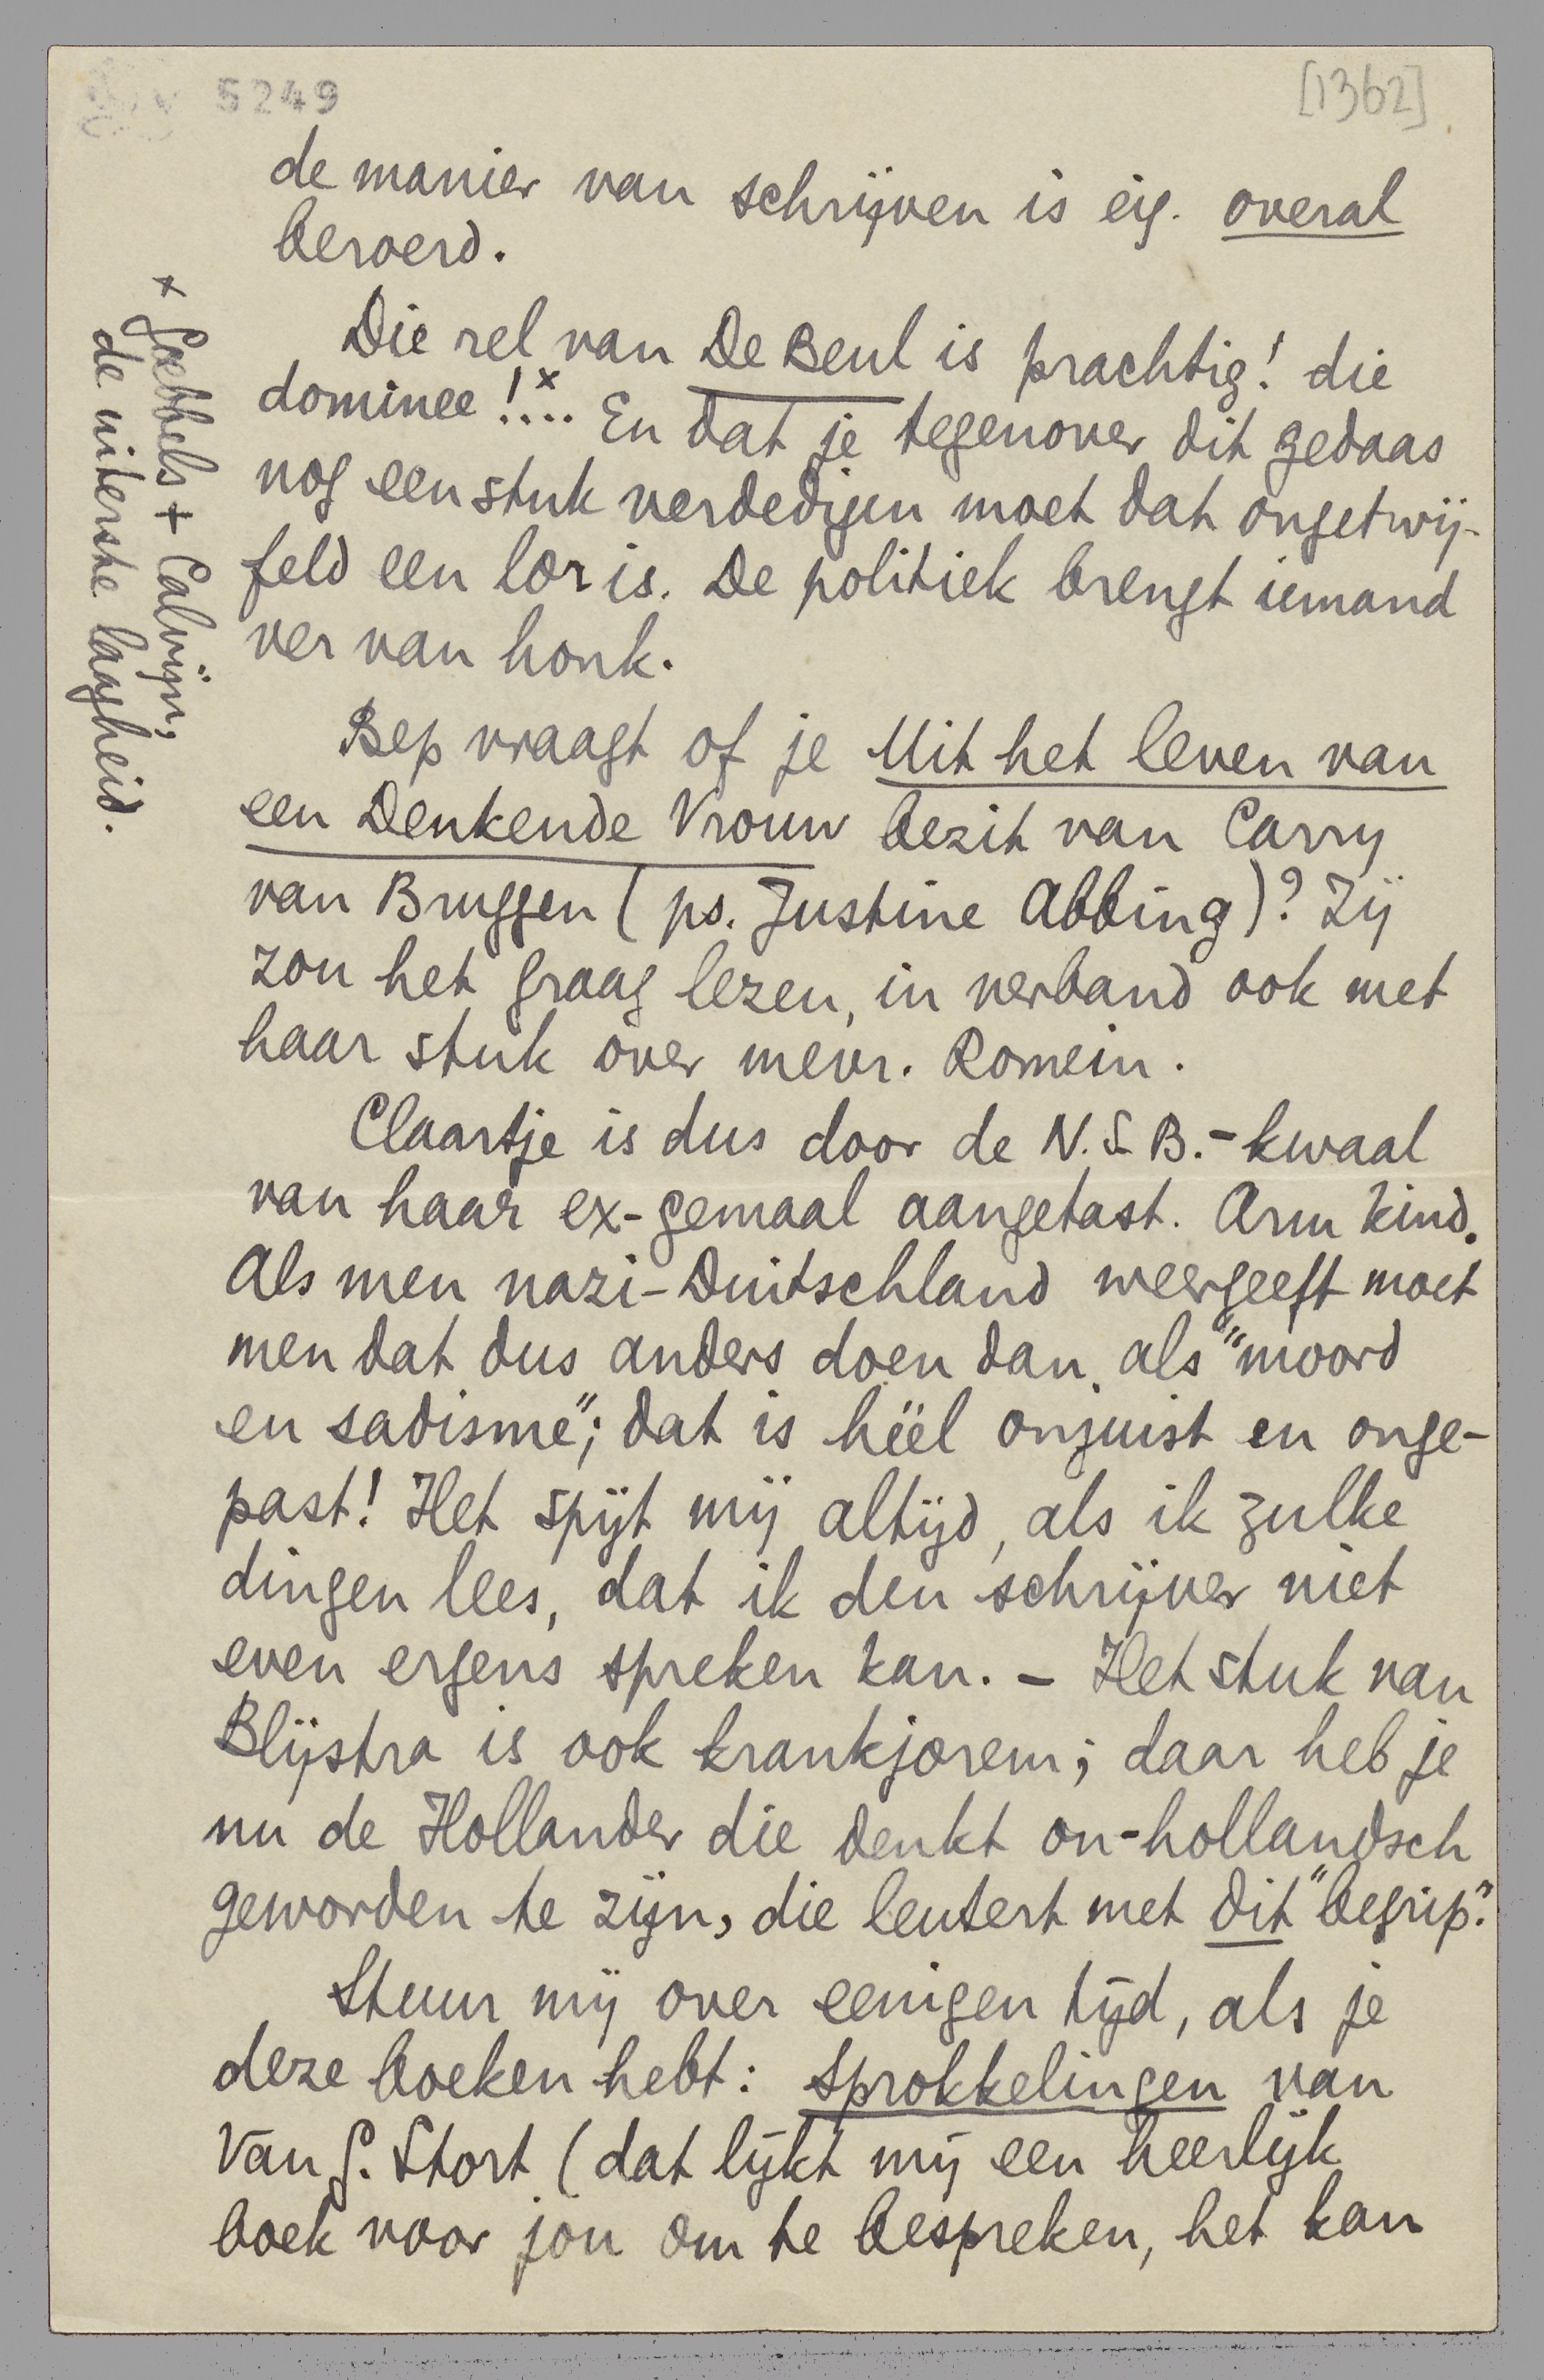 5249
[1362]
de manier van schrijven is eig. overal
beroerd.
Die rel van De Beul is prachtig! die
dominee!...x En dat je tegenover dit gedaas
nog een stuk verdedigen moet dat ongetwij-
feld een lor is. De politiek brengt iemand
ver van honk.
Bep vraagt of je Uit het leven van
een Denkende Vrouw bezit van Carry
van Bruggen (ps. Justine Abbing)? Zij
zou het graag lezen, in verband ook met
haar stuk over mevr. Romein.
Claartje is dus door de N.S.B.-kwaal
van haar ex-gemaal aangetast. Arm kind.
Als men nazi-Duitschland weergeeft moet
men dat dus anders doen dan als "moord
en sadisme"; dat is héél onjuist en onge-
past! Het spijt mij altijd, als ik zulke
dingen lees, dat ik den schrijver niet
even ergens spreken kan. - Het stuk van
Blijstra is ook krankjorem; daar heb je
nu de Hollander die denkt on-hollandsch
geworden te zijn, die leutert met dit "begrip".
Stuur mij over eenigen tijd, als je
deze boeken hebt: Sprokkelingen van
Van G. Stort (dat lijkt mij een heerlijk
boek voor jou om te bespreken, het kan
x Goebbels + Calvijn,
de uiterste laagheid.